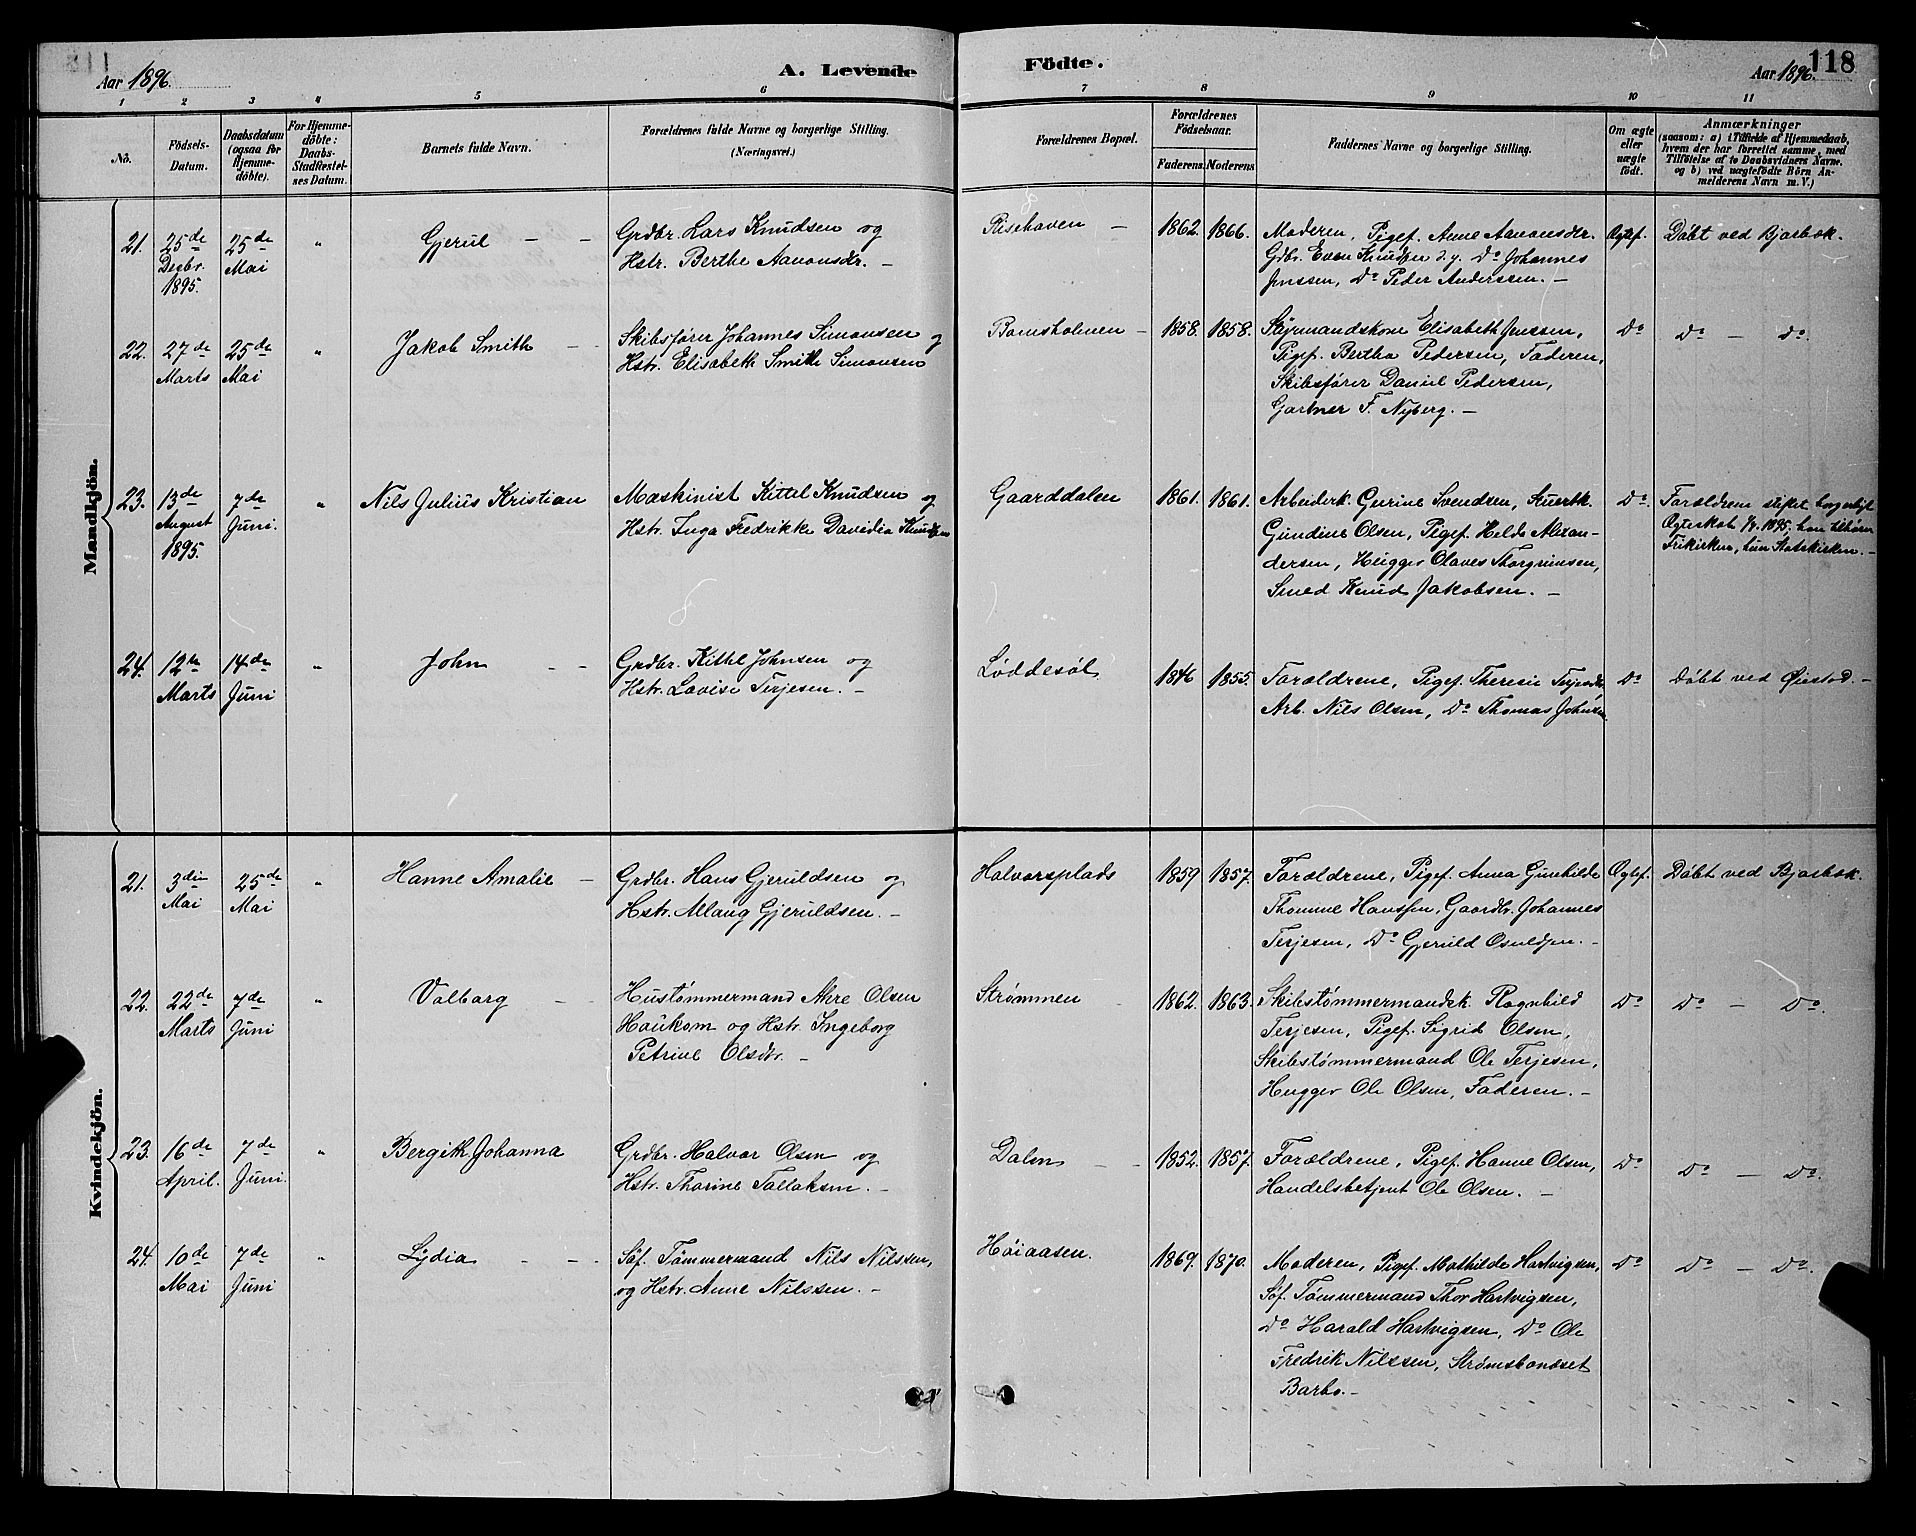 Aar 1896. A. Levende Födte. Aar 1896. 118
1 2 3 4 5 6 7 8 9 10 11
No.
Födsels-Datum.
Daabsdatum (ogsaa for Hjemme-döbte).
For Hjemme-döbte: Daabs-Stadfæstel-ses Datum.
Barnets fulde Navn.
Forældrenes fulde Navne og borgerlige Stilling.
(Næringsvei.)
Forældrenes Bopæl.
Forældrenes Födselsaar.
Faderens Moderens
Faddernes Navne og borgerlige Stilling.
Om ægte eller uægte födt.
Anmærkninger
(saasom: a) i Tilfælde af Hjemmedaab,
hvem der har forrettet samme, med
Tilföielse af to Daabsvidners Navne.
og b) ved uægtefödte Börn An-
melderens Navn m. V.)
Mandkjön.
21. 25de Decbr. 1895. 25de Mai " Gjerul - -
Grdbr. Lars Knudsen og
Hstr. Berthe Aanonsdr. -
Risehaven - 1862. 1866.
Moderen, Pigef. Anne Aanonsdr.
Gdbr. Even Knudsen d.y. Do Johannes
Jenssen, Do Peder Anderssen. -
Ægtef. Döbt ved Bjorbæk.
22. 27de Marts 25de Mai " Jakob Smith -
Skibsfører Johannes Simonsen og
Hstr. Elisabeth Smith Simonsen
Bomsholmen - 1858. 1858.
Styrmandskone Elisabeth Jenssen,
Pigef. Bertha Pedersen, Faderen,
Skibsfører Daniel Pedersen,
Gartner F. Nyberg. -
Do Do - Do.
23. 13de August 1895. 7de Juni. " Nils Julius Kristian
Maskinist Kittel Knudsen og
Hstr. Inga Fredrikke Davidia Knudsen
Gaarddalen 1861. 1861.
Arbeiderk. Gurine Svendsen, Skuertk.
Gundine Olsen, Pigef. Helde Alexan-
dersen, Hugger Olaves Thorgrimsen,
Smed Knud Jakobsen. -
Do. Forældrene stiftet borgerligt
Ægteskab 1895; han tilhører
Frikirken, hun Statskirken. -
24. 12te Marts 14de Juni " John - -
Grdbr. Kittel Johnsen og
Hstr. Lovise Terjesen. -
Løddesøl 1846 1855.
Forældrene, Pigef. Theresie Terjesdr.
Arb. Nils Olsen, Do Thomas Johnsen
Do Döbt ved Øiestad. -
Kvindekjön.
21. 3die Mai 25de Mai " Hanne Amalie -
Grdbr. Hans Gjeruldsen og
Hstr. Allaug Gjeruldsen. -
Halvorsplads 1859 1857.
Forældrene, Pigef. Anna Gunhilde
Thomine Hanssen, Gaardbr. Johannes
Terjesen, Do Gjeruld Osuldsen. -
Ægtef. Döbt ved Bjorbæk.
22. 22de Marts 7de Juni " Valborg -
Hustømmermand Akre Olsen
Haukom og Hstr. Ingeborg
Petrine Olsdr. -
Strømmen 1862. 1863.
Skibstømmermandsk. Ragnhild
Terjesen, Pigef. Sigrid Olsen,
Skibstømmermand Ole Terjesen,
Hugger Ole Olsen, Faderen. -
Do Do - Do.
23. 16de April. 7de Juni. " Bergith Johanna
Grdbr. Halvor Olsen og
Hstr. Thorine Tallaksen. -
Dalen - - 1852. 1857.
Forældrene, Pigef. Hanne Olsen,
Handelsbetjent Ole Olsen. -
Do Do - Do.
24. 10de Mai 7de Juni " Lydia - -
Søf. Tømmermand Nils Nilssen,
og Hstr. Anne Nilssen. -
Høiaasen. 1869. 1870.
Moderen, Pigef. Mathilde Hartvigsen,
Søf. Tømmermand Thor Hartvigsen,
Do Harald Hartvigsen, Do Ole
Fredrik Nilssen, Strømsbonæset
Barbo. -
Do Do - Do.